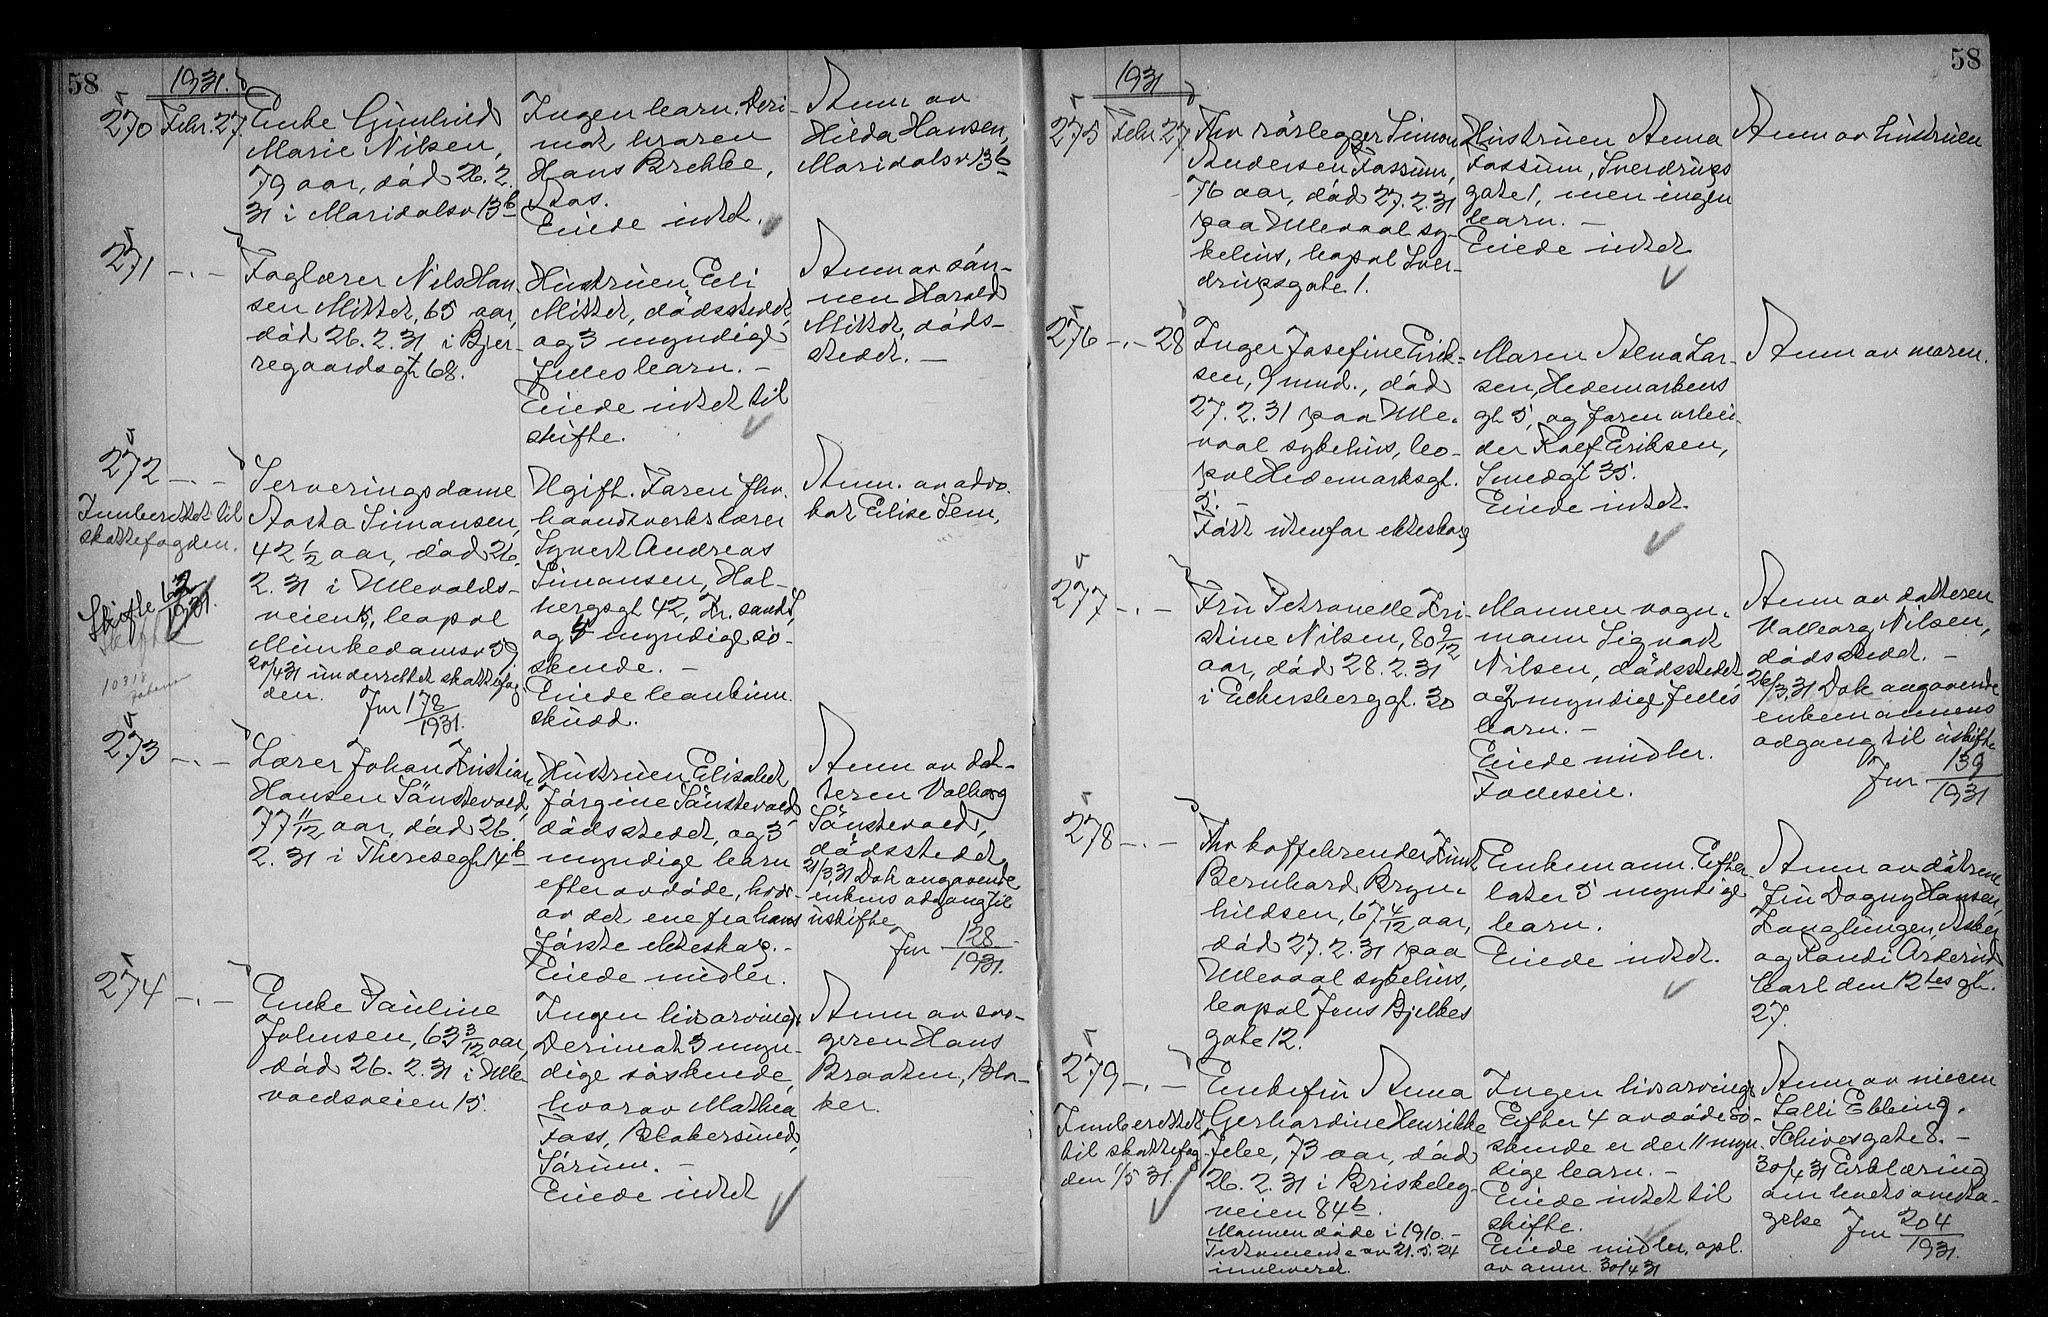 58
1931.
270 Febr. 27.
Enke Gunhild
Marie Nilsen,
79 aar, død 26.2.
31 i Maridalsv 13b
Ingen barn. Deri-
mot broren
Hans Brekke,
Eiede intet.
Anm av
Hilda Hansen,
Maridalsv 13b
271 -.-
Faglærer Nils Han
sen Mittet, 65 aar,
død 26.2.31 i Bjer-
regaardsgt 68.
Hustruen Eli
Mittet, dødsstedet
og 3 myndige
fælles barn. -
Eiede intet til
skifte.
Anm av søn-
nen Harald
Mittet, døds-
stedet. -
272 -.-
Innberettet til
skattefogden.
Skifte 62/1931.
Serveringsdame
Aasta Simonsen,
42 1/2 aar, død 26.
2.31 i Ullevolds-
veien 5, bopæl
Munkedamsv 59.
20/4 31 underrettet skattefog
den. Jnr 178/1931.
Ugift. Faren fhv.
haandverkslærer
Syvert Andreas
Simonsen, Hol-
bergsgt 42, Kr. sand S,
og 4 myndige sø-
skende. -
Eiede bankinn-
skudd.
Anm. av advo-
kat Elise Sem,
273 -.-
Lærer Johan Kristian
Hansen Sønstevold,
77 11/12 aar, død 26.
2.31 i Theresegt 14b
Hustruen Elisabet
Jørgine Sønstevold,
dødsstedet, og 3
myndige barn
efter avdøde, hvor-
av det ene fra hans
første ekteskap. -
Eiede midler.
Anm av dat-
teren Valborg
Sønstevold,
dødsstedet
21/3 31 Dok angaaende
enkens adgang til
uskifte
Jnr 128/1931.
274 -.-
Enke Pauline
Johnsen, 63 3/12 aar,
død 26.2.31 i Ulle-
voldsveien 15.
Ingen livsarving.
Derimot 3 myn-
dige søskende,
hvorav Mathea
Foss, Blakersund,
Sørum. -
Eiede intet
Anm av svo-
geren Hans
Braaten, Bla-
ker.
58
1931
275 Febr 27
Fhv rørlegger Simon
Andersen Fossum,
76 aar, død 27.2.31
paa Ullevaal sy-
kehus, bopæl Sver-
drupsgate 1.
Hustruen Anna
Fossum, Sverdrups
gate 1, men ingen
barn. -
Eiede intet
Anm av hustruen
276 -.- 28
Inger Josefine Erik-
sen, 9 mnd., død
27.2.31 paa Ulle-
vaal sykehus, bo-
pæl Hedemarksgt.
5. -
Født utenfor ekteskap
Moren Alma Lar-
sen, Hedemarkens
gt 5, og faren arbei-
der Rolf Eriksen,
Smedgt 35.
Eiede intet.
Anm av moren.
277 -.-
Fru Petronelle Kri-
stine Nilsen, 80 9/12
aar, død 28.2.31
i Eckersberggt. 30
Mannen vogn-
mann Sigvart
Nilsen, dødsstedet
og 2 myndige fælles
barn. -
Eiede midler.
Fælleseie.
Anm av datteren
Valborg Nilsen,
dødsstedet. -
26/3 31 Dok angaaende
enkemannens
adgang til uskifte
Jnr 139/1931
278 -.-
Fhv kaffebrenner Knut
Bernhard Bryn-
hildsen, 67 4/12 aar,
død 27.2.31 paa
Ullevaal sykehus,
bopæl Jens Bjelkes
gate 12.
Enkemann. Efter-
later 5 myndige
barn.
Eiede intet.
Anm av døtrene
fru Dagny Hansen,
Asker
og Randi Arderud
Carl den 12tes gt.
27.
279 -.-
Innberettet
til skattefog-
den 1/5 31.
Enkefru Anna
Gerhardine Henrikke
73 aar, død
26.2.31 i Briskeby-
veien 84b.
Mannen døde i 1910. -
Testamente av 21.5.24
innleveret.
Ingen livsarving.
Efter 4 avdøde sø-
skende er der 11 myn-
dige barn. -
Eiede intet til
skifte.
Eiede midler, opl.
av anm. 30/4 31
Anm av niecen
Salli Ebbing,
Schivesgate 8. -
30/4 31 Erklæring
om boets overta-
gelse Jnr 204/1931.